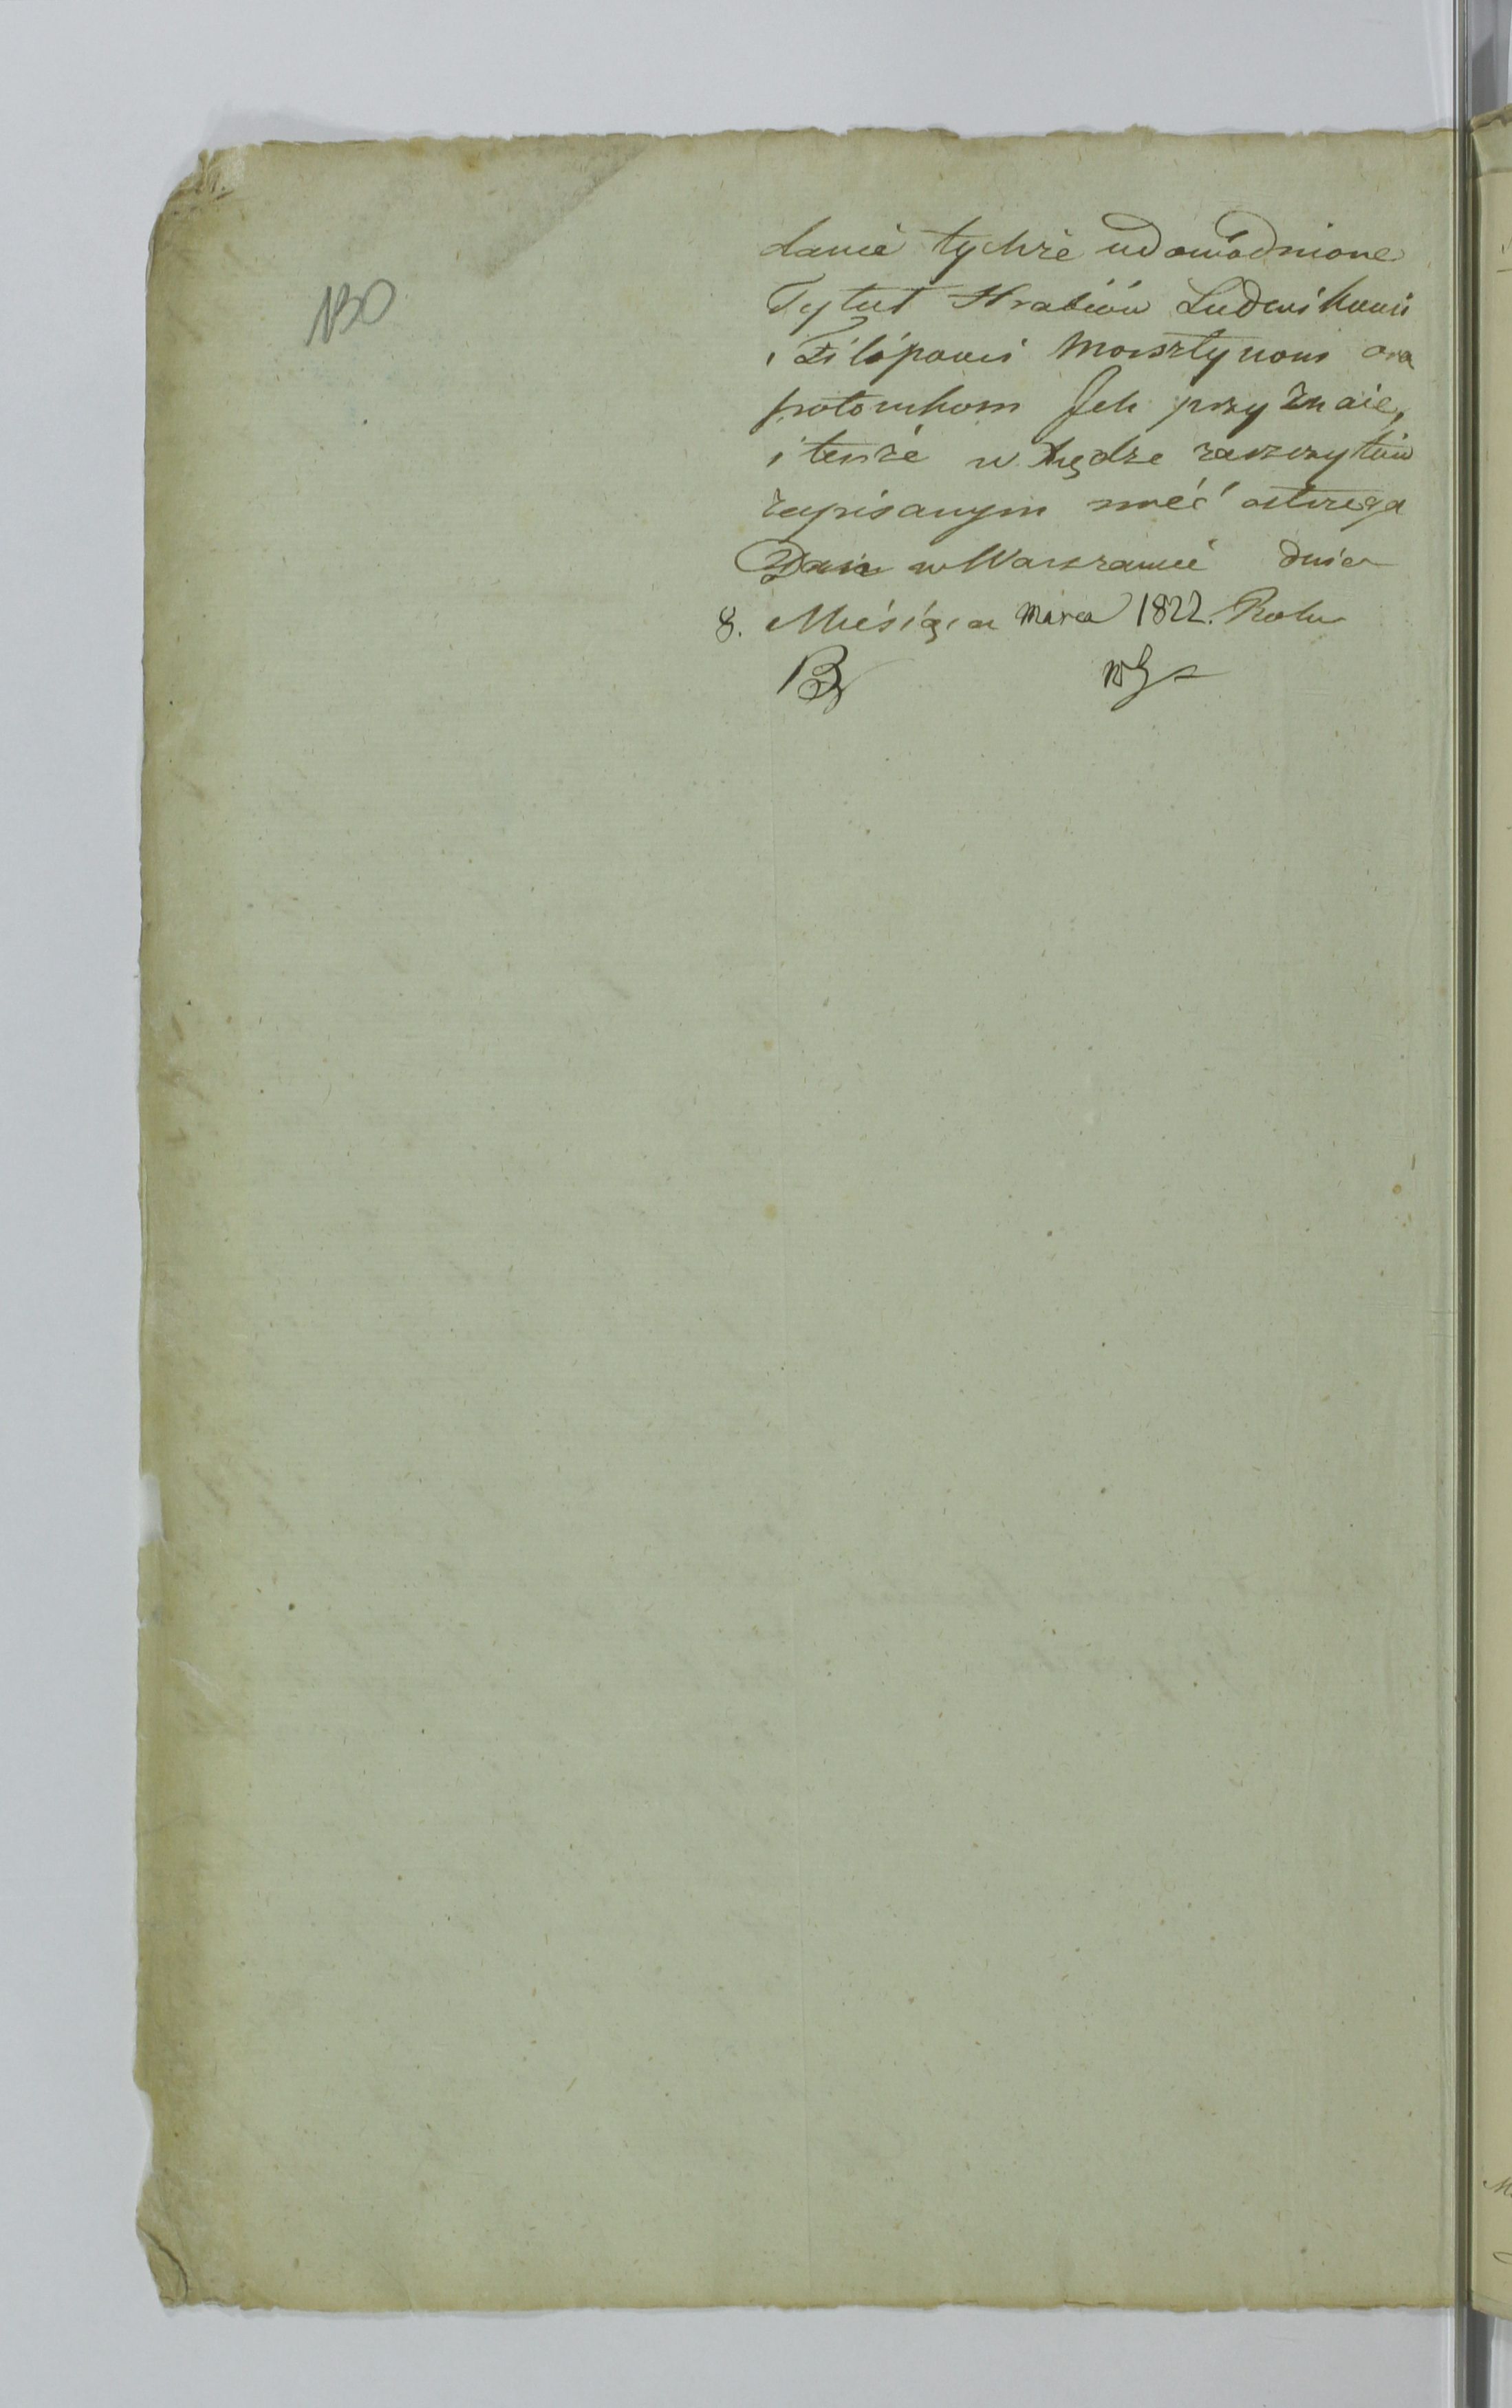 130
danie tychże udowodnione
Tytuł Hrabiów Ludwikowi
i Filipowi Morsztynom ora
potomkom Jch przyznaie,
i tenże w księdze zaszczytów
zapisanym mieć ostrzega
Dan w Warszawie dnia
8. Miesiąca Marca 1822. Roku